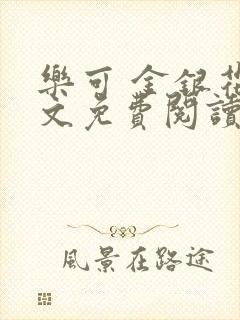 樂可 金銀花
文免費閱讀
風景在路途